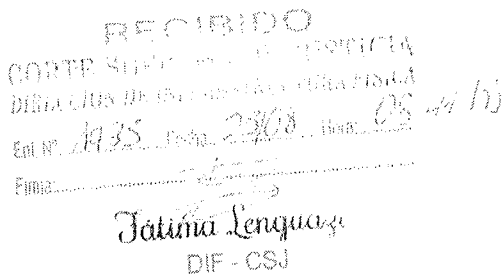 RECIBIDO
CORTE SUPREMA DE JUSTICIA
DIRECCIÓN DE INFRAESTRUCTURA FÍSICA
Ent. Nº 1935 Fecha 23/08 Hora:
Firma:
Fátima Lenguaza
DIF - CSJ